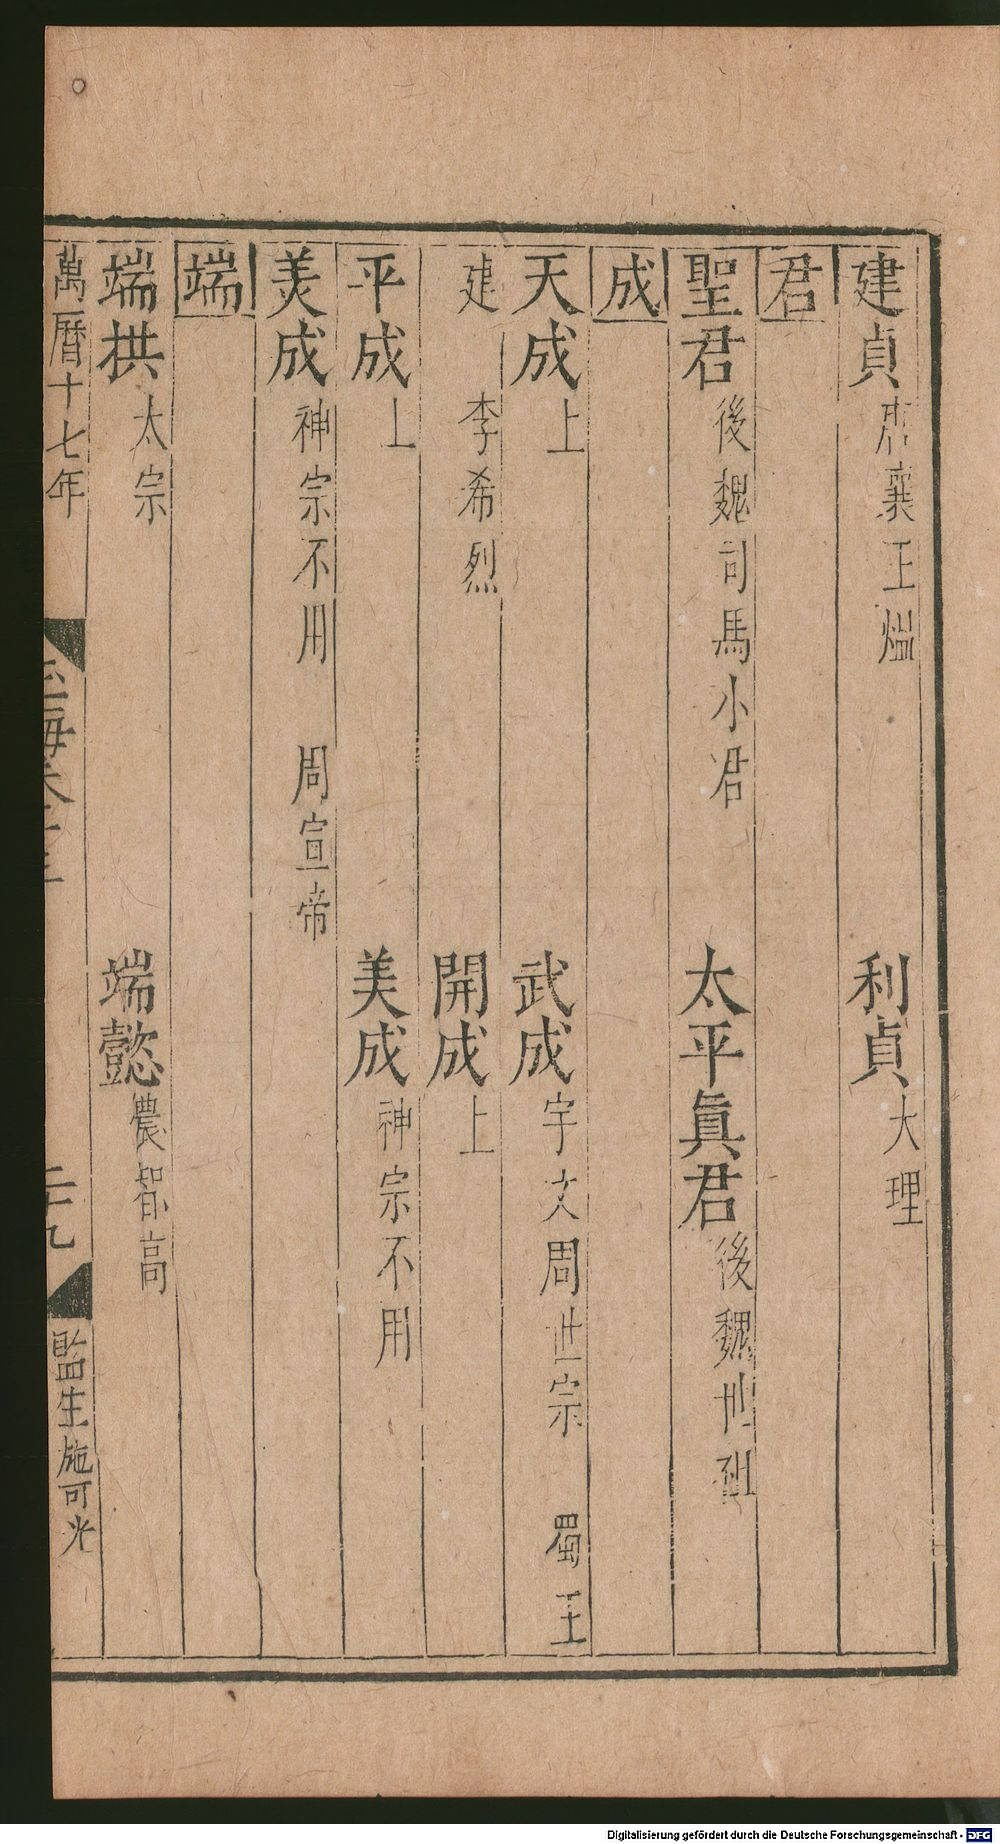 建貞 唐襄王熅 利貞 大理
君
聖君 後魏司馬小君 太平眞君 後魏世祖
成
天成 上 武成 宇文周世宗 蜀王
建 李希烈 開成 上
平成 上 美成 神宗不用
美成 神宗不用 周宣帝
端
端拱 太宗 端懿 儂智高
萬曆十七年 玉海卷十三 二十九 監生施可光
Digitalisierung gefördert durch die Deutsche Forschungsgemeinschaft - DFG